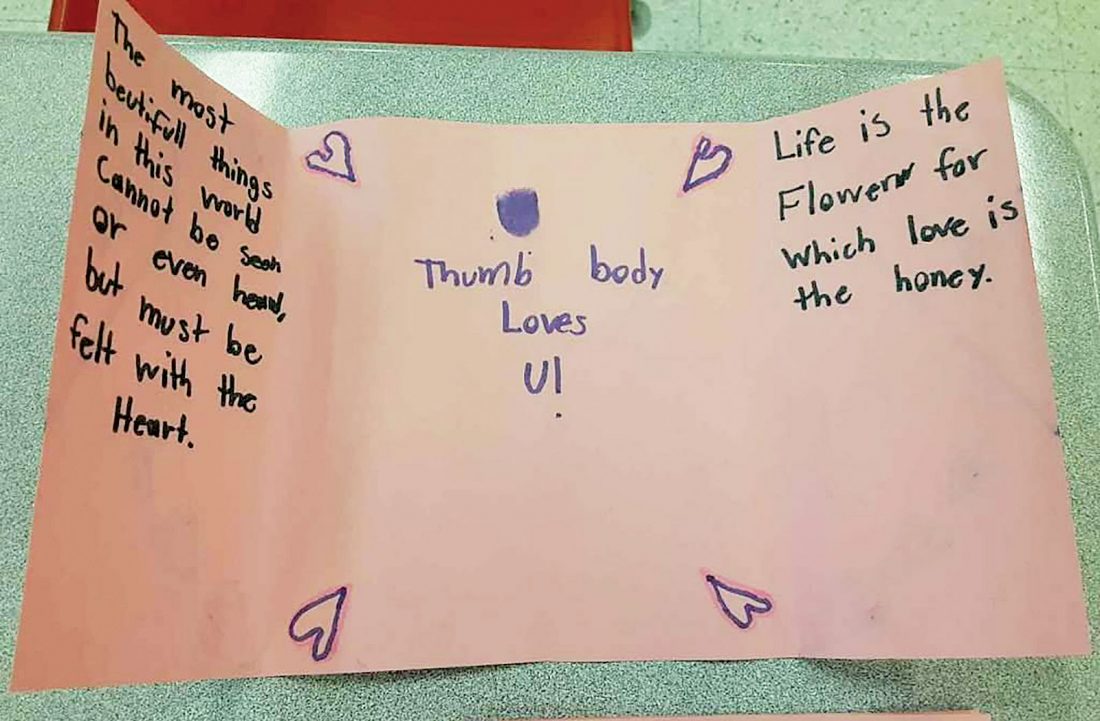 The most
beutifull things
in this world
Cannot be seen
or even heard,
but must be
felt with the
Heart.
Thumb body
Loves
U!
Life is the
Flower for
which love is
the honey.